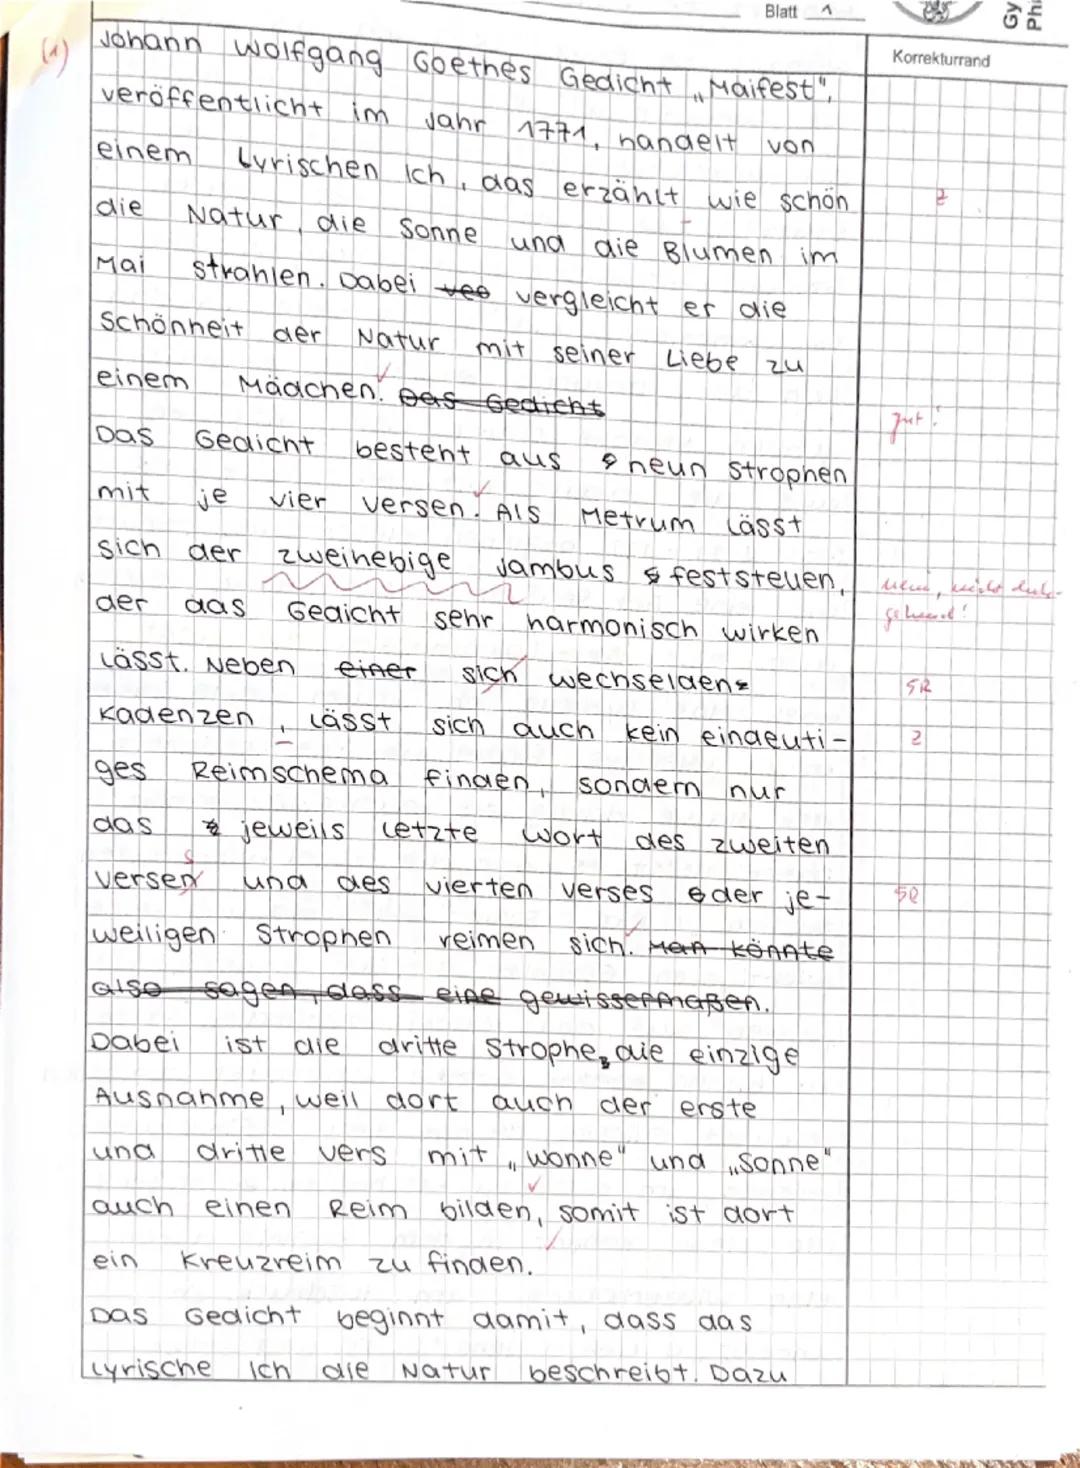 Blatt 1
Gy
Phi
(1)
Korrekturrand
Johann Wolfgang Goethes Gedicht „Maifest",
veröffentlicht im Jahr 1771, handelt von
einem Lyrischen Ich, das erzählt wie schön
Z
die Natur, die Sonne und die Blumen im
Mai strahlen. Dabei vergleicht er die
Schönheit der Natur mit seiner Liebe zu
einem Mädchen. Das Gedicht
gut!
Das Gedicht besteht aus neun Strophen
mit je vier Versen. Als Metrum lässt
sich der zweihebige Jambus feststellen,
nein, nicht durch-
gehend!
der das Gedicht sehr harmonisch wirken
lässt. Neben einer sich wechselden
SR
Kadenzen, lässt sich auch kein eindeuti-
Z
ges Reimschema finden, sondern nur
das jeweils letzte Wort des zweiten
Versen und des vierten Verses der je-
s
SR
weiligen Strophen reimen sich. Man könnte
also sagen, dass eine gewissermaßen.
Dabei ist die dritte Strophe, die einzige
Ausnahme, weil dort auch der erste
und dritte Vers mit „Wonne" und „Sonne"
auch einen Reim bilden, somit ist dort
ein Kreuzreim zu finden.
Das Gedicht beginnt damit, dass das
Lyrische Ich die Natur beschreibt. Dazu